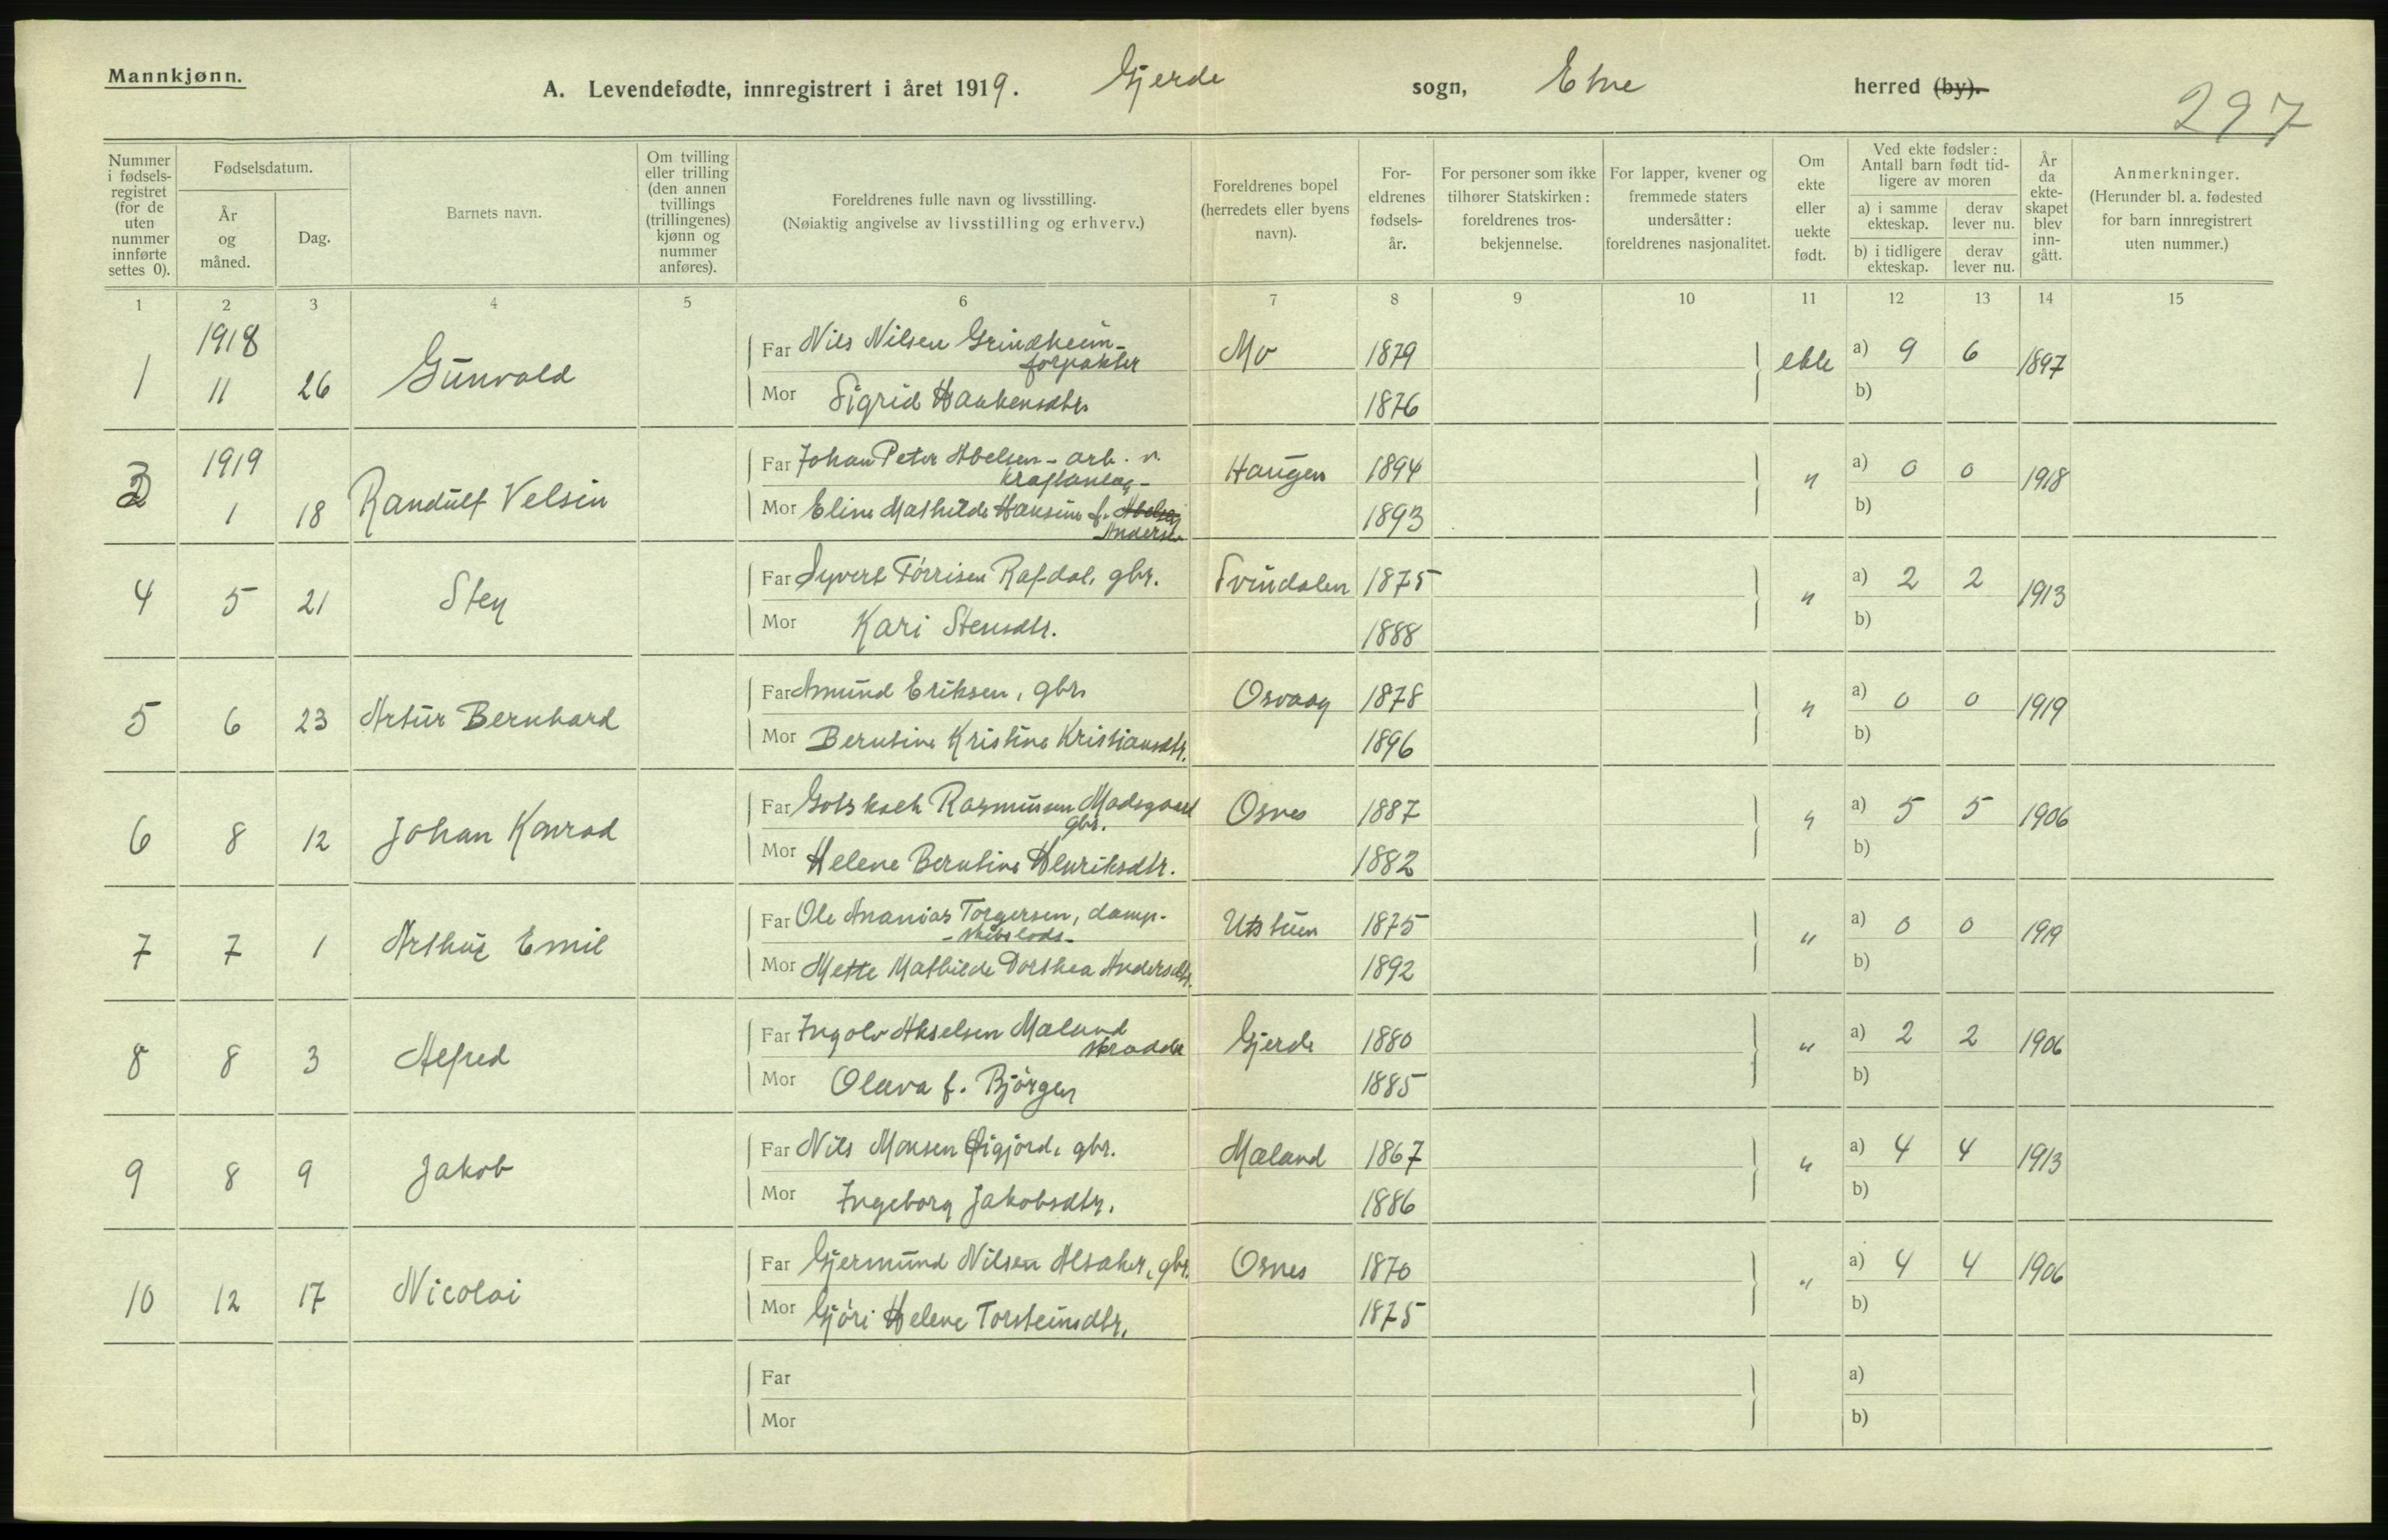 Mannkjønn.
A. Levendefødte, innregistrert i året 1919. Gjerde sogn, Etne herred (by).
297
Nummer i fødselsregistret (for de uten nummer innførte settes 0).
Fødselsdatum.
År og måned.
Dag.
Barnets navn.
Om tvilling eller trilling (den annen tvillings (trillingenes) kjønn og nummer anføres).
Foreldrenes fulle navn og livsstilling.
(Nøiaktig angivelse av livsstilling og erhverv.)
Foreldrenes bopel (herredets eller byens navn).
Foreldrenes fødselsår.
For personer som ikke tilhører Statskirken: foreldrenes trosbekjennelse.
For lapper, kvener og fremmede staters undersåtter: foreldrenes nasjonalitet.
Om ekte eller uekte født.
Ved ekte fødsler: Antall barn født tidligere av moren
a) i samme ekteskap. derav lever nu.
b) i tidligere ekteskap. derav lever nu.
År da ekteskapet blev inngått.
Anmerkninger.
(Herunder bl. a. fødested for barn innregistrert uten nummer.)
1 2 3 4 5 6 7 8 9 10 11 12 13 14 15
1918
Far Nils Nilsen Grindheim - Mo 1879 ekte a) 9 6 1897
forpakter
1 11 26 Gunvald
Mor Sigrid Haakensdtr. 1876 b)
1919
Far Johan Peter Abelsen - arb. v. Haugen 1894 " a) 0 0 1918
kraftanlæg -
3 1 18 Randulf Velsin
Mor Eline Mathilde Hansine f. Abelsen 1893 b)
Andersen
Far Syvert Torrisen Rafdal, gbr. Svindalen 1875 " a) 2 2 1913
4 5 21 Sten
Mor Kari Stensdtr. 1888 b)
Far Amund Eriksen, gbr. Osvaag 1878 " a) 0 0 1919
5 6 23 Artur Bernhard
Mor Berntine Kristine Kristiansdtr. 1896 b)
Far Gotskalk Rasmussen Madsgaard Osnes 1887 " a) 5 5 1906
gbr.
6 8 12 Johan Konrad
Mor Helene Berntine Henriksdtr. 1882 b)
Far Ole Ananias Torgersen, damp- Utstuen 1875 " a) 0 0 1919
- skibslods -
7 7 1 Arthur Emil
Mor Mette Mathilde Dorthea Andersdtr. 1892 b)
Far Ingolv Akselsen Mæland Gjerde 1880 " a) 2 2 1906
skrædder
8 8 3 Alfred
Mor Olava f. Bjørgen 1885 b)
Far Nils Monsen Øigjord, gbr. Mæland 1867 " a) 4 4 1913
9 8 9 Jakob
Mor Ingeborg Jakobsdtr. 1886 b)
Far Gjermund Nilsen Alsaker, gbr. Osnes 1870 " a) 4 4 1906
10 12 17 Nicolai
Mor Gjøri Helene Torsteinsdtr. 1875 b)
Far a)
Mor b)